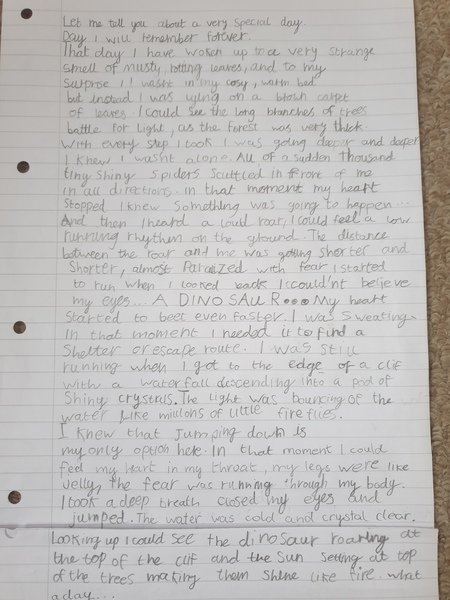 Let me tell you about a very special day.
Day I will remember forever.
That day I have woken up to a very strange
smell of musty, rotting leaves, and to my
surprise I wasnt in my cosy, warm bed
but instead I was lying on a brown carpet
of leaves. I could see the long branches of trees
battle for light, as the forest was very thick.
With every step I took I was going deeper and deeper
I knew I wasnt alone. All of a sudden thousand
tiny shiny spiders scuttled in front of me
in all directions. in that moment my heart
stopped I knew something was going to happen...
And then I heard a loud roar, I could feel a low
running rhythm on the ground. The distance
between the roar and me was getting shorter and
shorter, almost Paralized with fear I started
to run when I looked back I could'nt believe
my eyes... A DINOSAUR... My heart
started to beet even faster. I was sweating.
In that moment I needed it to find a
shelter or escape route. I was still
running when I got to the edge of a clif
with a waterfall descending into a pool of
shiny crystals. The light was bouncing of the
water like millions of little fireflies.
I knew that jumping down is
my only option here. In that moment I could
feel my heart in my throat, my legs were like
Jelly, the fear was running through my body.
I took a deep breath, closed my eyes and
jumped. The water was cold and crystal clear.
Looking up I could see the dinosaur roaring at
the top of the clif and the sun setting at top
of the trees making them shine like fire. what
a day....